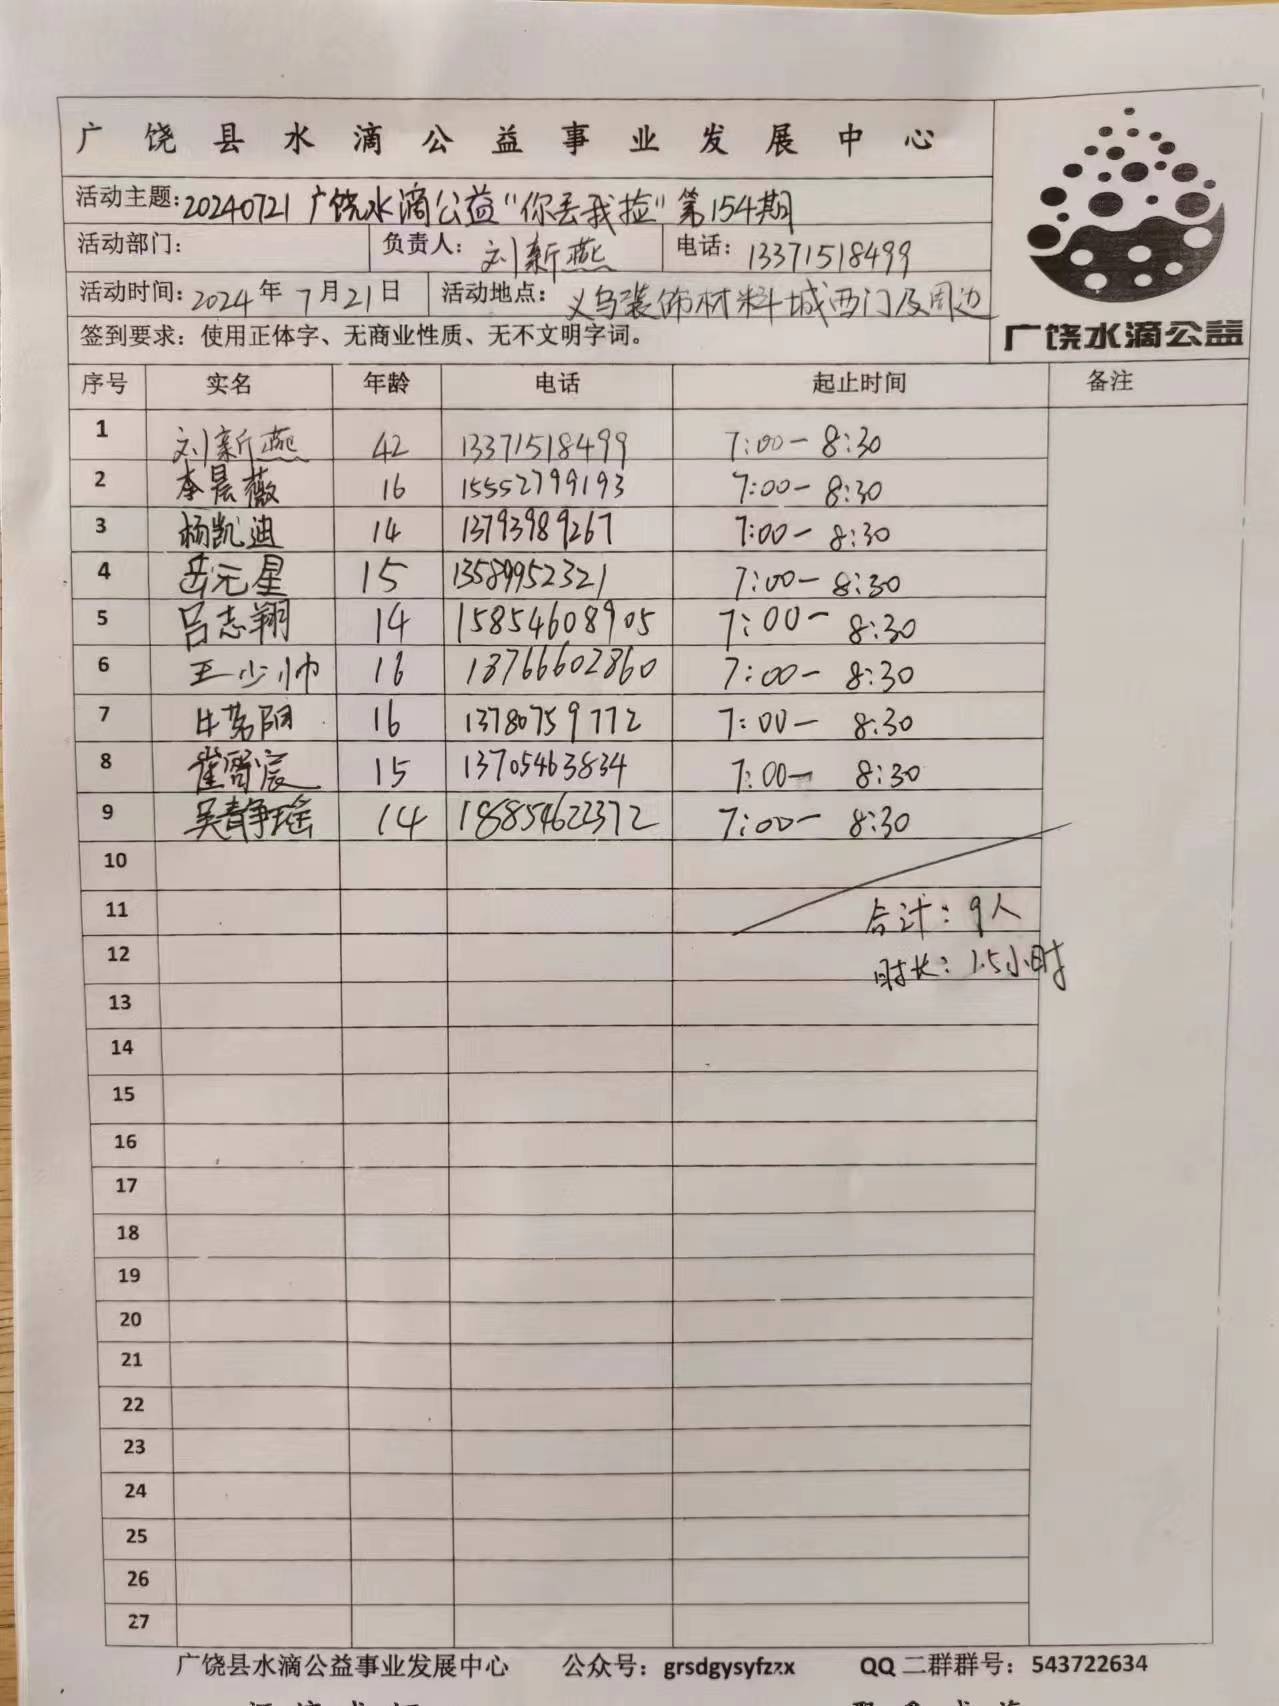 广饶县水滴公益事业发展中心
活动主题:20240721 广饶水滴公益"你丢我捡"第154期
活动部门: 负责人: 刘新燕 电话: 13371518499
活动时间: 2024年 7月21日 活动地点: 义乌装饰材料城西门及周边
签到要求：使用正体字、无商业性质、无不文明字词。
广饶水滴公益
序号 实名 年龄 电话 起止时间 备注
1 刘新燕 42 13371518499 7:00-8:30
2 李晨薇 16 15552799193 7:00-8:30
3 杨凯迪 14 13793989267 7:00-8:30
4 岳元星 15 13589952321 7:00-8:30
5 吕志翔 14 15854608905 7:00-8:30
6 王少帅 16 18766602860 7:00-8:30
7 牛 阳 16 13780759772 7:00-8:30
8 崔 宸 15 13705463834 7:00-8:30
9 吴静瑶 14 186854622372 7:00-8:30
10
11 合计: 9人
12 时长: 1.5小时
13
14
15
16
17
18
19
20
21
22
23
24
25
26
27
广饶县水滴公益事业发展中心 公众号：grsdgysyfzzx QQ二群群号：543722634